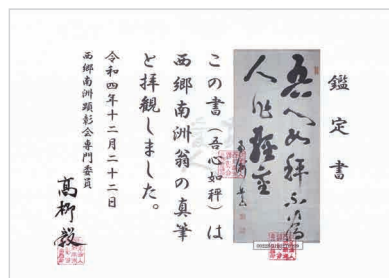 鑑定書
吾心如秤不為
人作軽重
この書（吾心如秤）は
西郷南洲翁の真筆
と拝観しました。
令和四年十二月二十二日
西郷南洲顕彰会専門委員
高柳毅